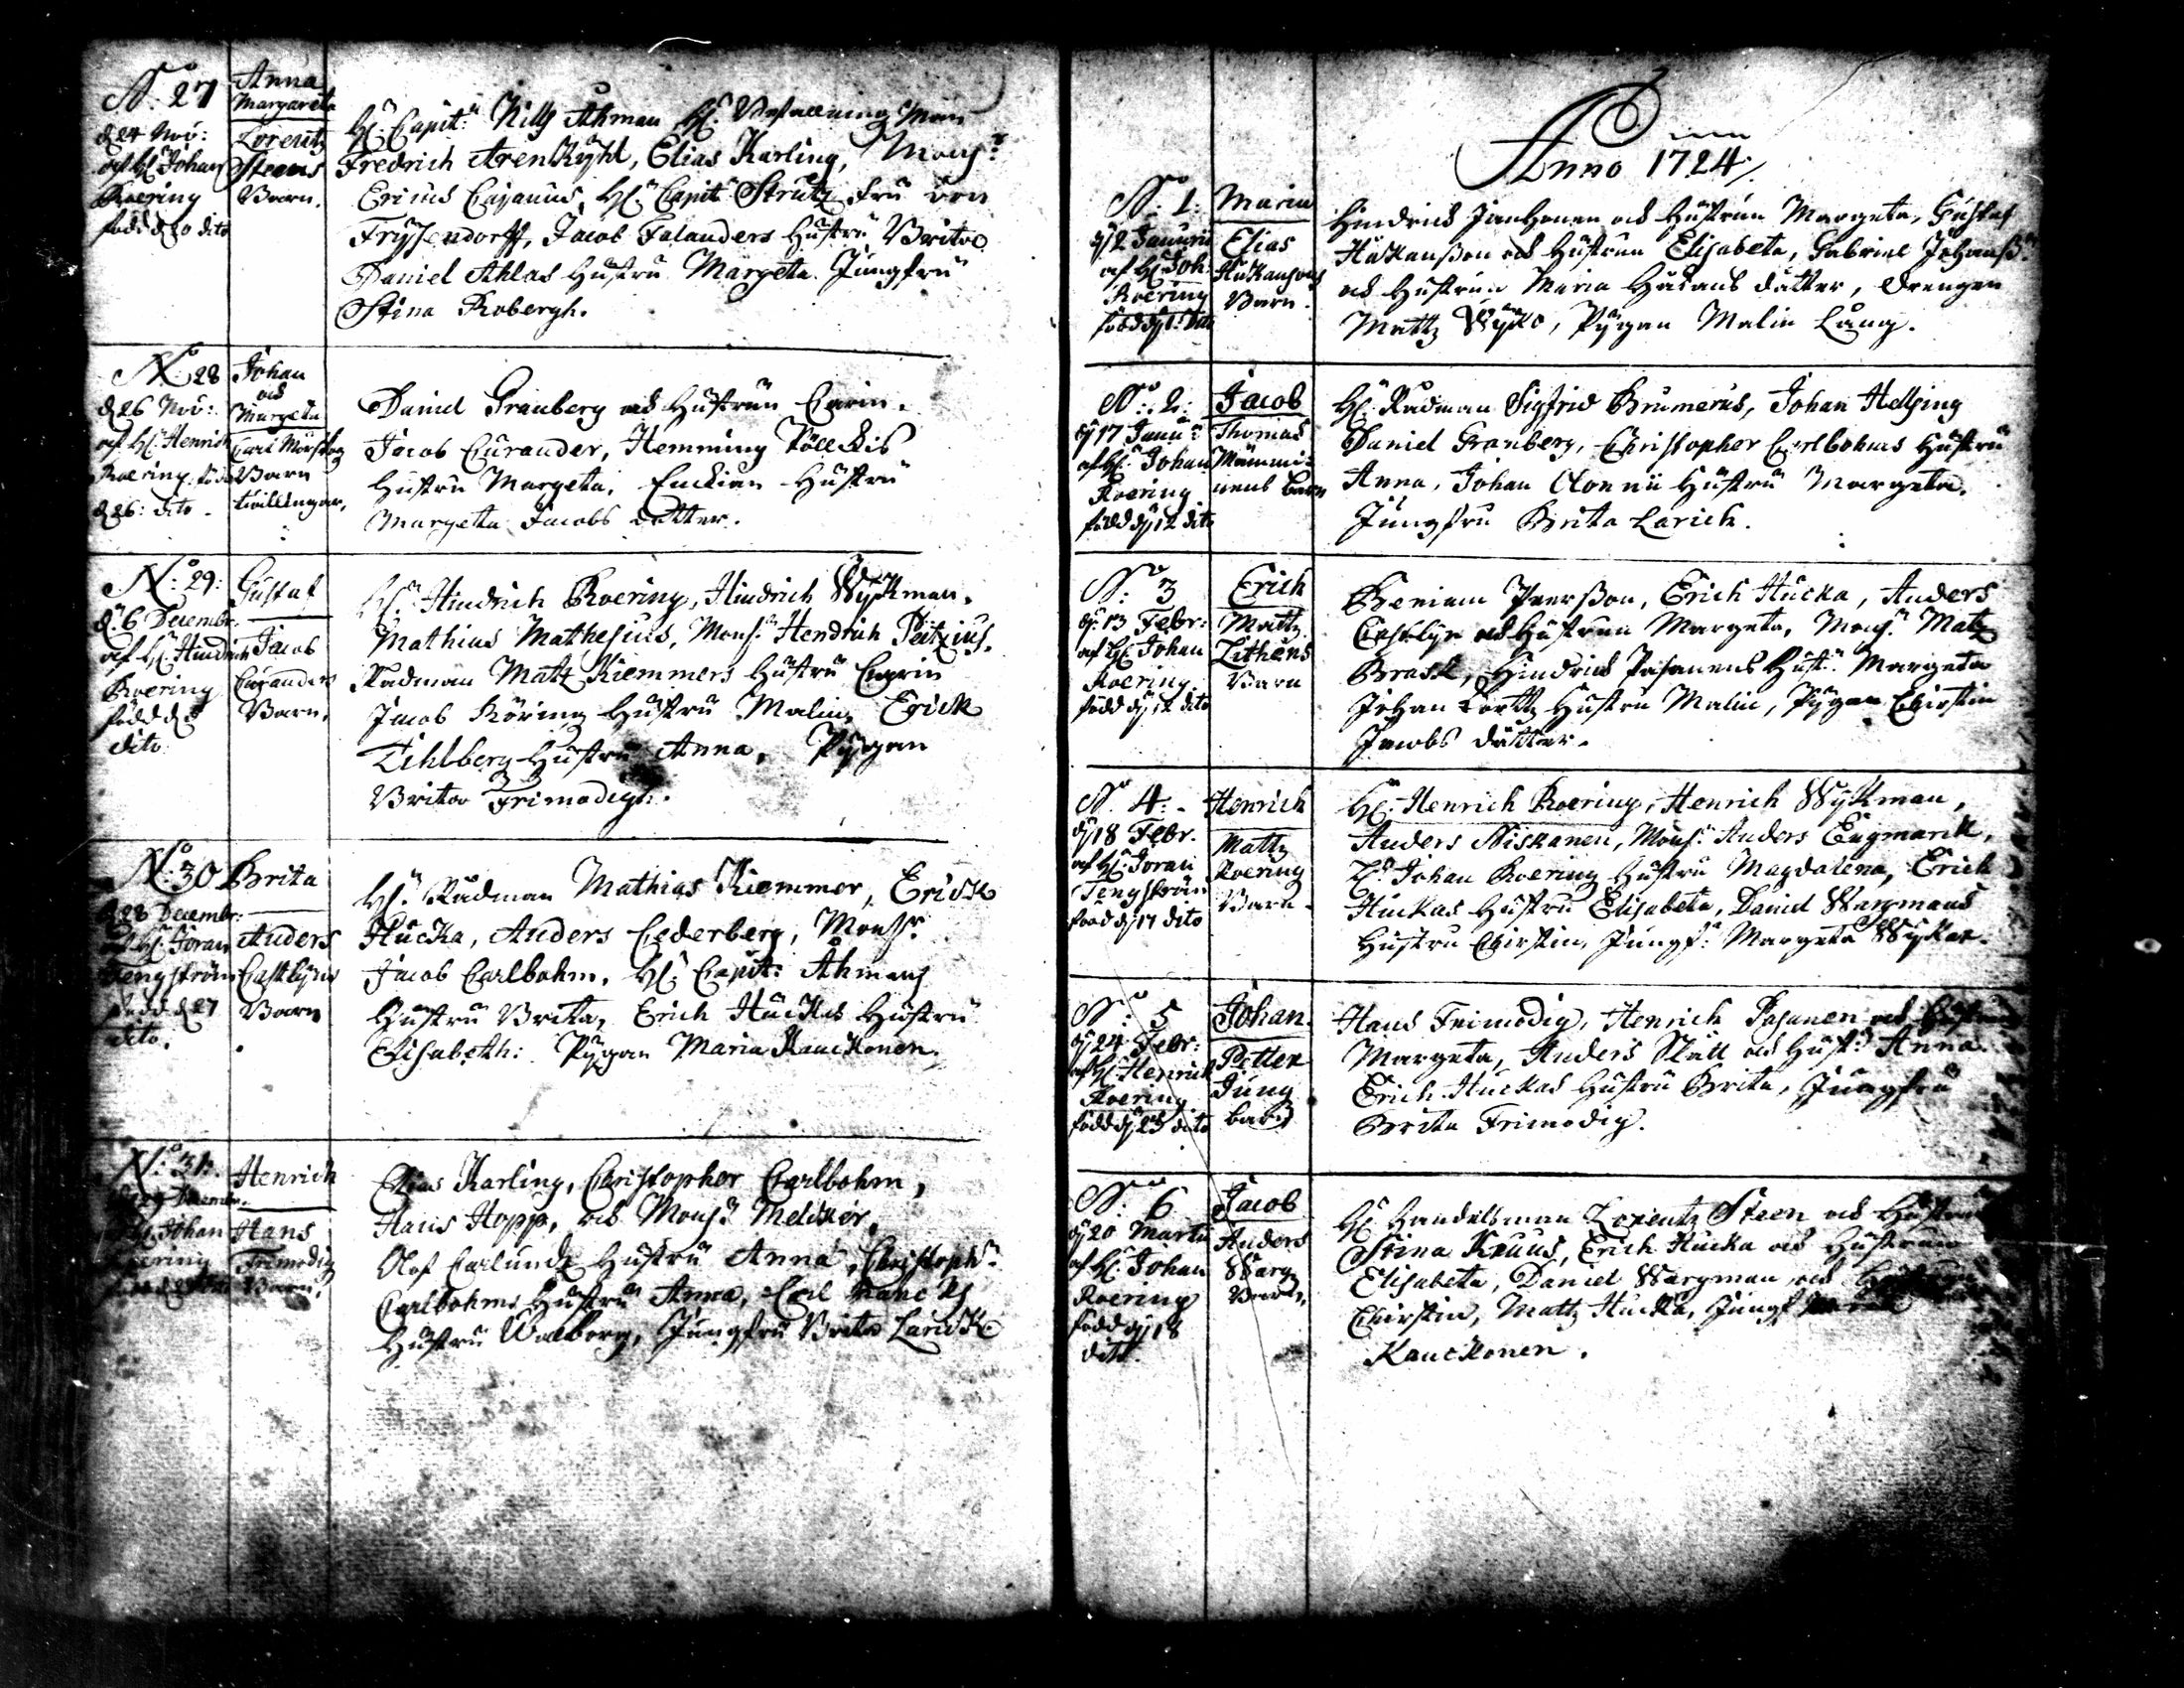 N:o 27
d 24 Nov:
af H. Johan
Roering
född d 20 dito
Anna
Margareta
Lorentz
Steens
Barn.
H: Capit: Nills Ahman H: Befallningz Man
Fredrich Arenkÿhl, Elias Karling, Mons:r
Ericus Cajanus, H: Capit: Strutz Fru von
Frÿsendorff, Jacob Falanders Hustru Brita
Daniel Ahlas Hustru Margeta Jungfru
Stina Robergh.
N:o 28
d 26 Nov:
af H: Henrich
Roering född
d 26: dito.
Johan
och
Margeta
Barn
tvillingar.
Daniel Granberg och Hustrun Carin.
Jacob Curander, Hemming
Hustru Margeta, Enckian Hustru
Margeta Jacobs dotter.
N:o 29:
d: 6 Decembr:
af H: Hindrich
Roering
född d 5
dito
Gustaf
Jacob
Curanders
Barn.
H: Hindrich Roering, Hindrich Wÿkman.
Mathias Mathesius, Mons: Hendrich Peitzius.
Rådman Matz Kiemmers Hustru Carin
Jacob Röring Hustru Malin, Erick
Zihlberg Hustru Anna, Pÿgan
Brita Frimodigh.
N:o 30
d 28 Decembr:
af H: Joran
Tengström
född d 27
dito.
Brita
Anders
Castlÿns
Barn
H: Rådman Mathias Kiemmer, Erick
Hucka, Anders Cederberg, Mons:r
Jacob Carlbohm. H: Capit: Åhmans
Hustru Brita, Erich Huckas Hustru
Elisabeth: Pÿgan Maria Kauckonen.
N:o 31:
Decembr.
H. Johan
Roering
Henrich
Hans
Frimodig
Barn.
Elias Karling, Christopher Carlbohm,
Hans Hopp, och Mons:r Melckior,
Olof Carlundz Hustru Anna, Christoph:
Carlbohms Hustru Anna, Carl
Hustru Walborg, Jungfru Brita Larick
Anno 1724.
N:o 1:
dÿ 2 Januarii
af H: Joh:
Roering
född dÿ 1: dito
Maria
Elias
Håkansons
Barn.
Hindrick Janhonen och Hustrun Margeta, Gustaf
Håkansson och Hustrun Elisabeta, Gabriel Johanss:
och Hustrun Maria Håkans dotter, Drengen
Mattz Wÿko, Pÿgan Malin Lång.
N:o 2:
dÿ 17 Janu:
af H: Johan
Roering
född dÿ 12 dito
Jacob
Thomas
Mammi-
nens barn
H: Rådman Sigfrid Brumerus, Johan Hellsing
Daniel Granberg, Christopher Carlbohms Hustru
Anna, Johan Hustru Margeta.
Jungfru Brita Larich.
N:o 3
dÿ 13 Febr:
af H: Johan
Roering
född dÿ 12 dito
Erich
Mattz
Lithens
Barn
Beniam Peersson, Erich Hucka, Anders
Castlÿn och Hustrun Margeta, Mons: Matz
Brask, Hindrick Pasanens Hust: Margeta
Johan Hustru Malin, Pÿgan Chirstin
Jacobs dotter.
N:o 4:
dÿ 18 Febr.
af H: Joran
Tengström
född dÿ 17 dito
Henrich
Mattz
Roering
Barn.
H: Henrich Roering, Henrich Wÿkman,
Anders Niskanen, Mons: Anders Engmarck,
H: Johan Roering Hustru Magdalena, Erich
Huckas Hustru Elisabeta, Daniel Wargmans
Hustru Chirstin, Jungf: Margeta Wÿkar.
N:o 5
dÿ 24 Febr:
af H: Henrich
Roering
född dÿ 23 dito
Johan.
Petter
Jung
barn
Hans Frimodig, Henrich Pasanen och Hustrun
Margeta, Anders Ståll och Hust: Anna.
Erich Huckas Hustru Brita, Jungfru
Brita Frimodig.
N:o 6
dÿ 20 Martii
af H: Johan
Roering
född dÿ 18
dito.
Jacob
Anders
Warg
Barn.
H: Handelsman Lorentz Steen och Hustrun
Stina Kruus, Erich Hucka och Hustrun
Elisabeta, Daniel Wargman och Hustrun
Chirstin, Mattz Hucka, Jungf
Kauckonen.